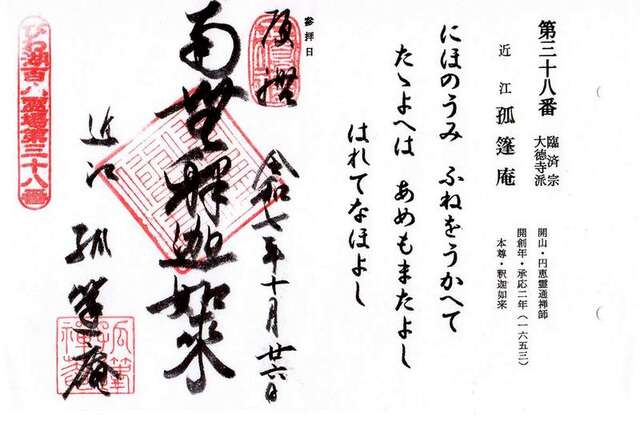 第三十八番
臨済宗
大徳寺派
近江 孤篷庵
開山・円恵霊通禅師
開創年・承応二年(一六五三)
本尊・釈迦如来
にほのうみ ふねをうかへて
たゝよへは あめもまたよし
はれてなほよし
参拝日
令和七年十月廿六日
南無釋迦如来
近江
孤篷庵
びわ湖百八霊場第三十八番